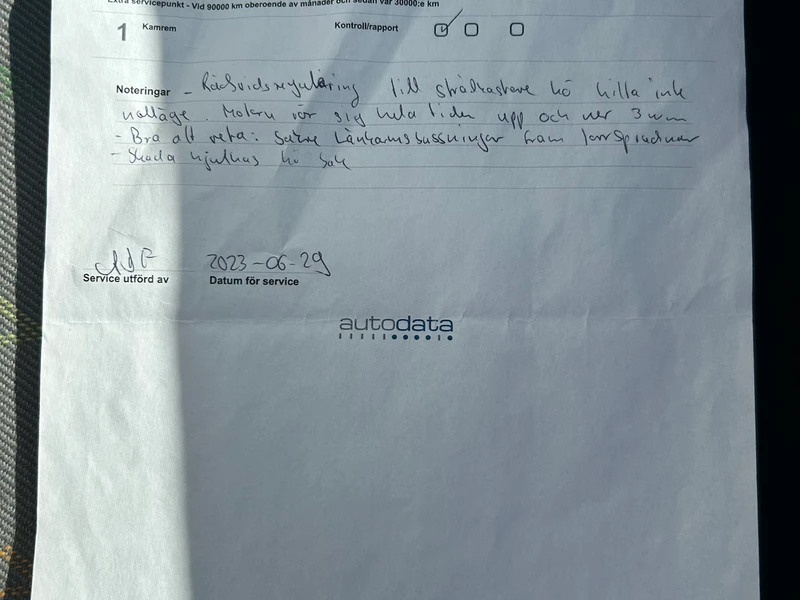 Extra servicepunkt - Vid 90000 km oberoende av månader och sedan var 30000:e km
1 Kamrem Kontroll/rapport
Noteringar - Räckviddsreguläring till strålkastare hö hilla ink
nolläge. Motorn rör sig hela tiden upp och ner 3 mm
- Bra att veta: Satre Länkarmsbussningar fram torrsprickor
- Skada hjulhus hö bak
Service utförd av
2023-06-29
Datum för service
autodata